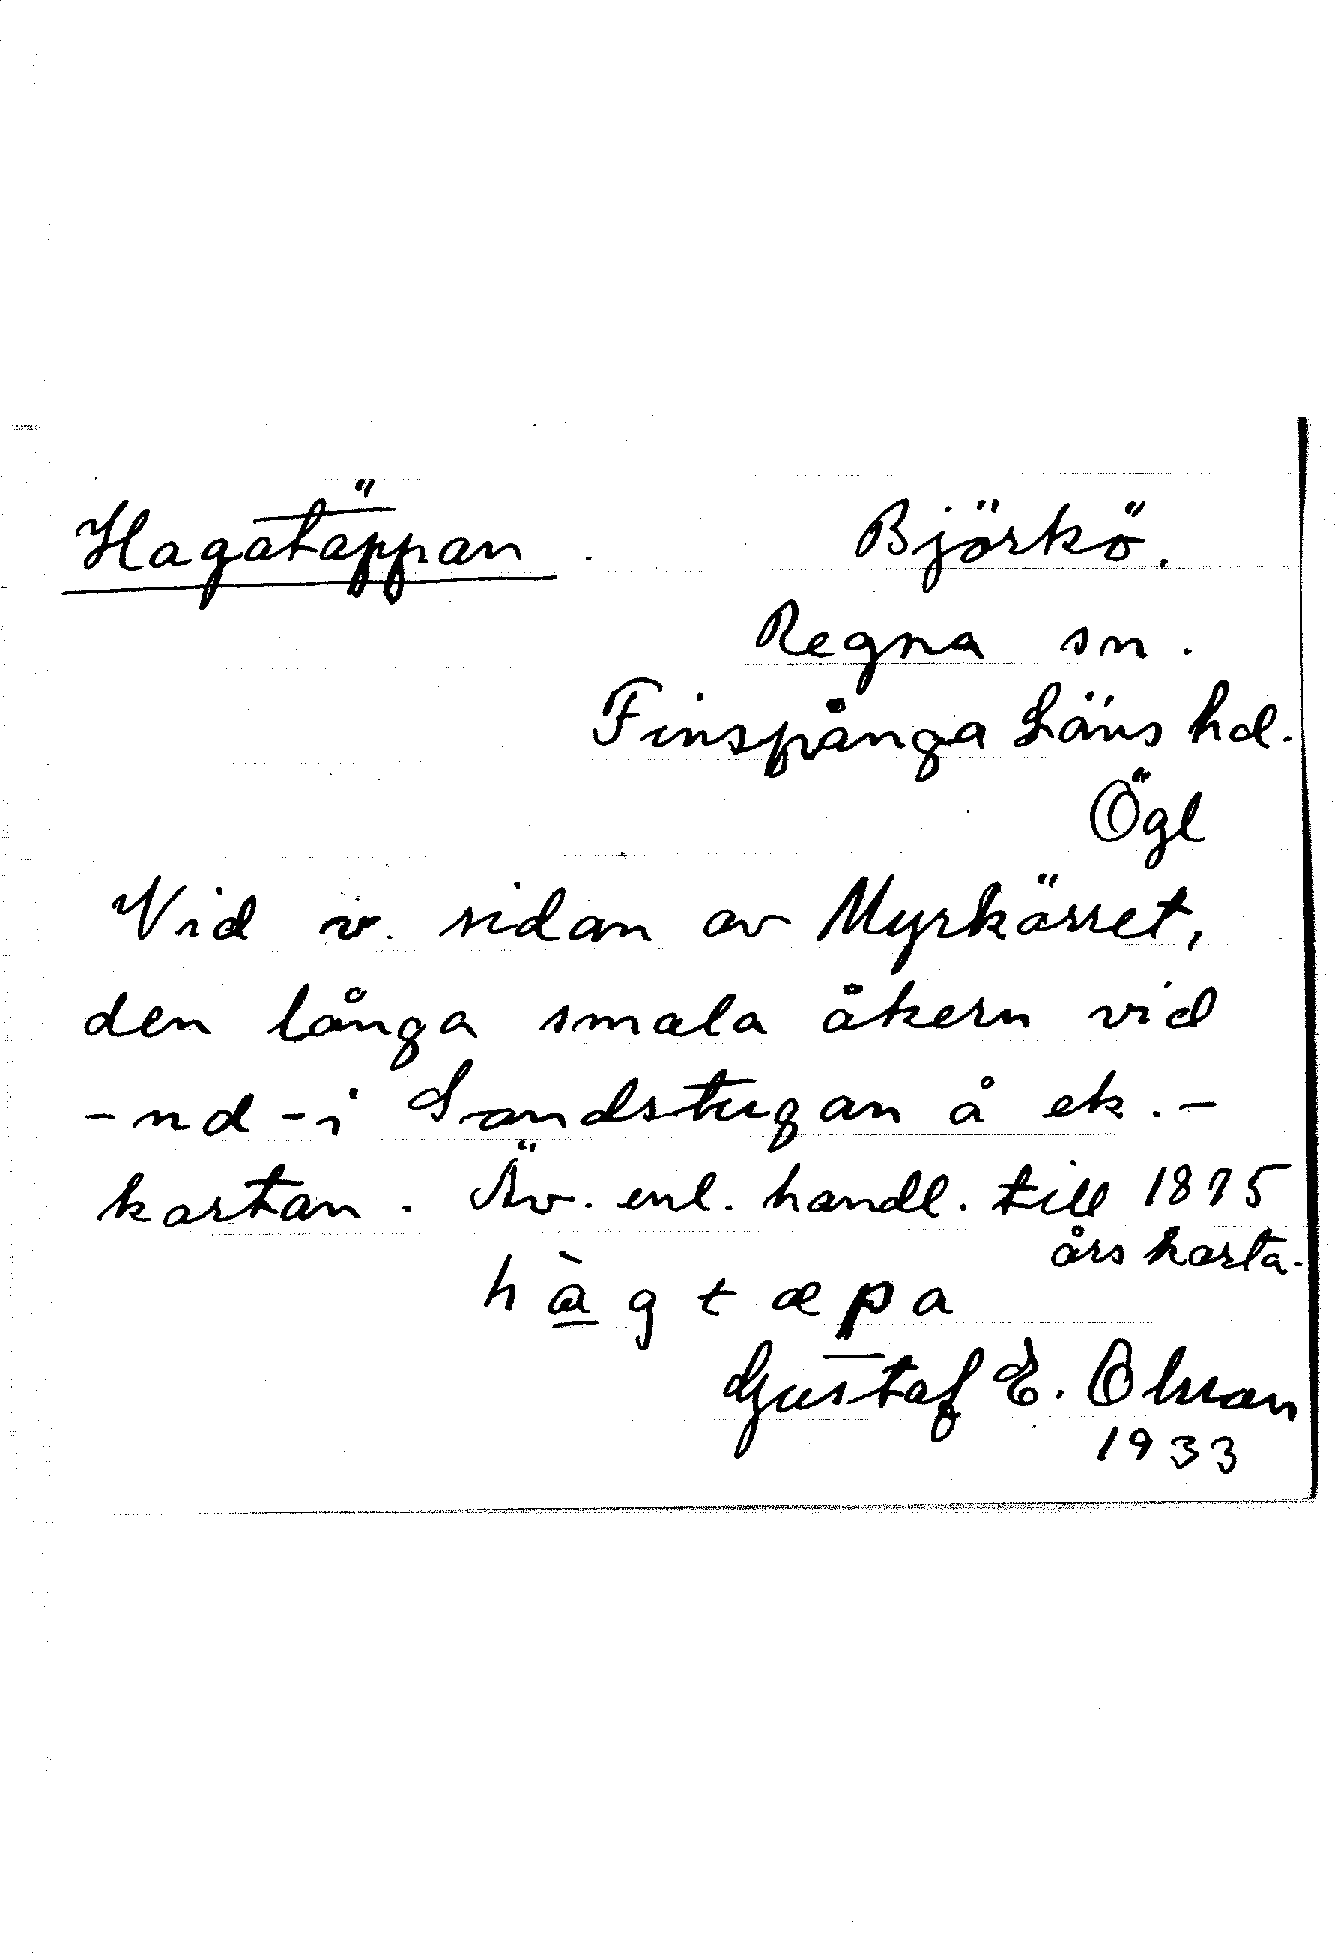 Hagatäppan . Björkö.
Regna sn.
Finspånga Läns hd.
Ögl
Vid v. sidan av Myrkärret,
den långa smala åkern vid
-nd-i Sandstugan å ek.-
kartan. Äv. enl. handl. till 1875
års karta.
h à g t æ p a
Gustaf E. Olsson
1933